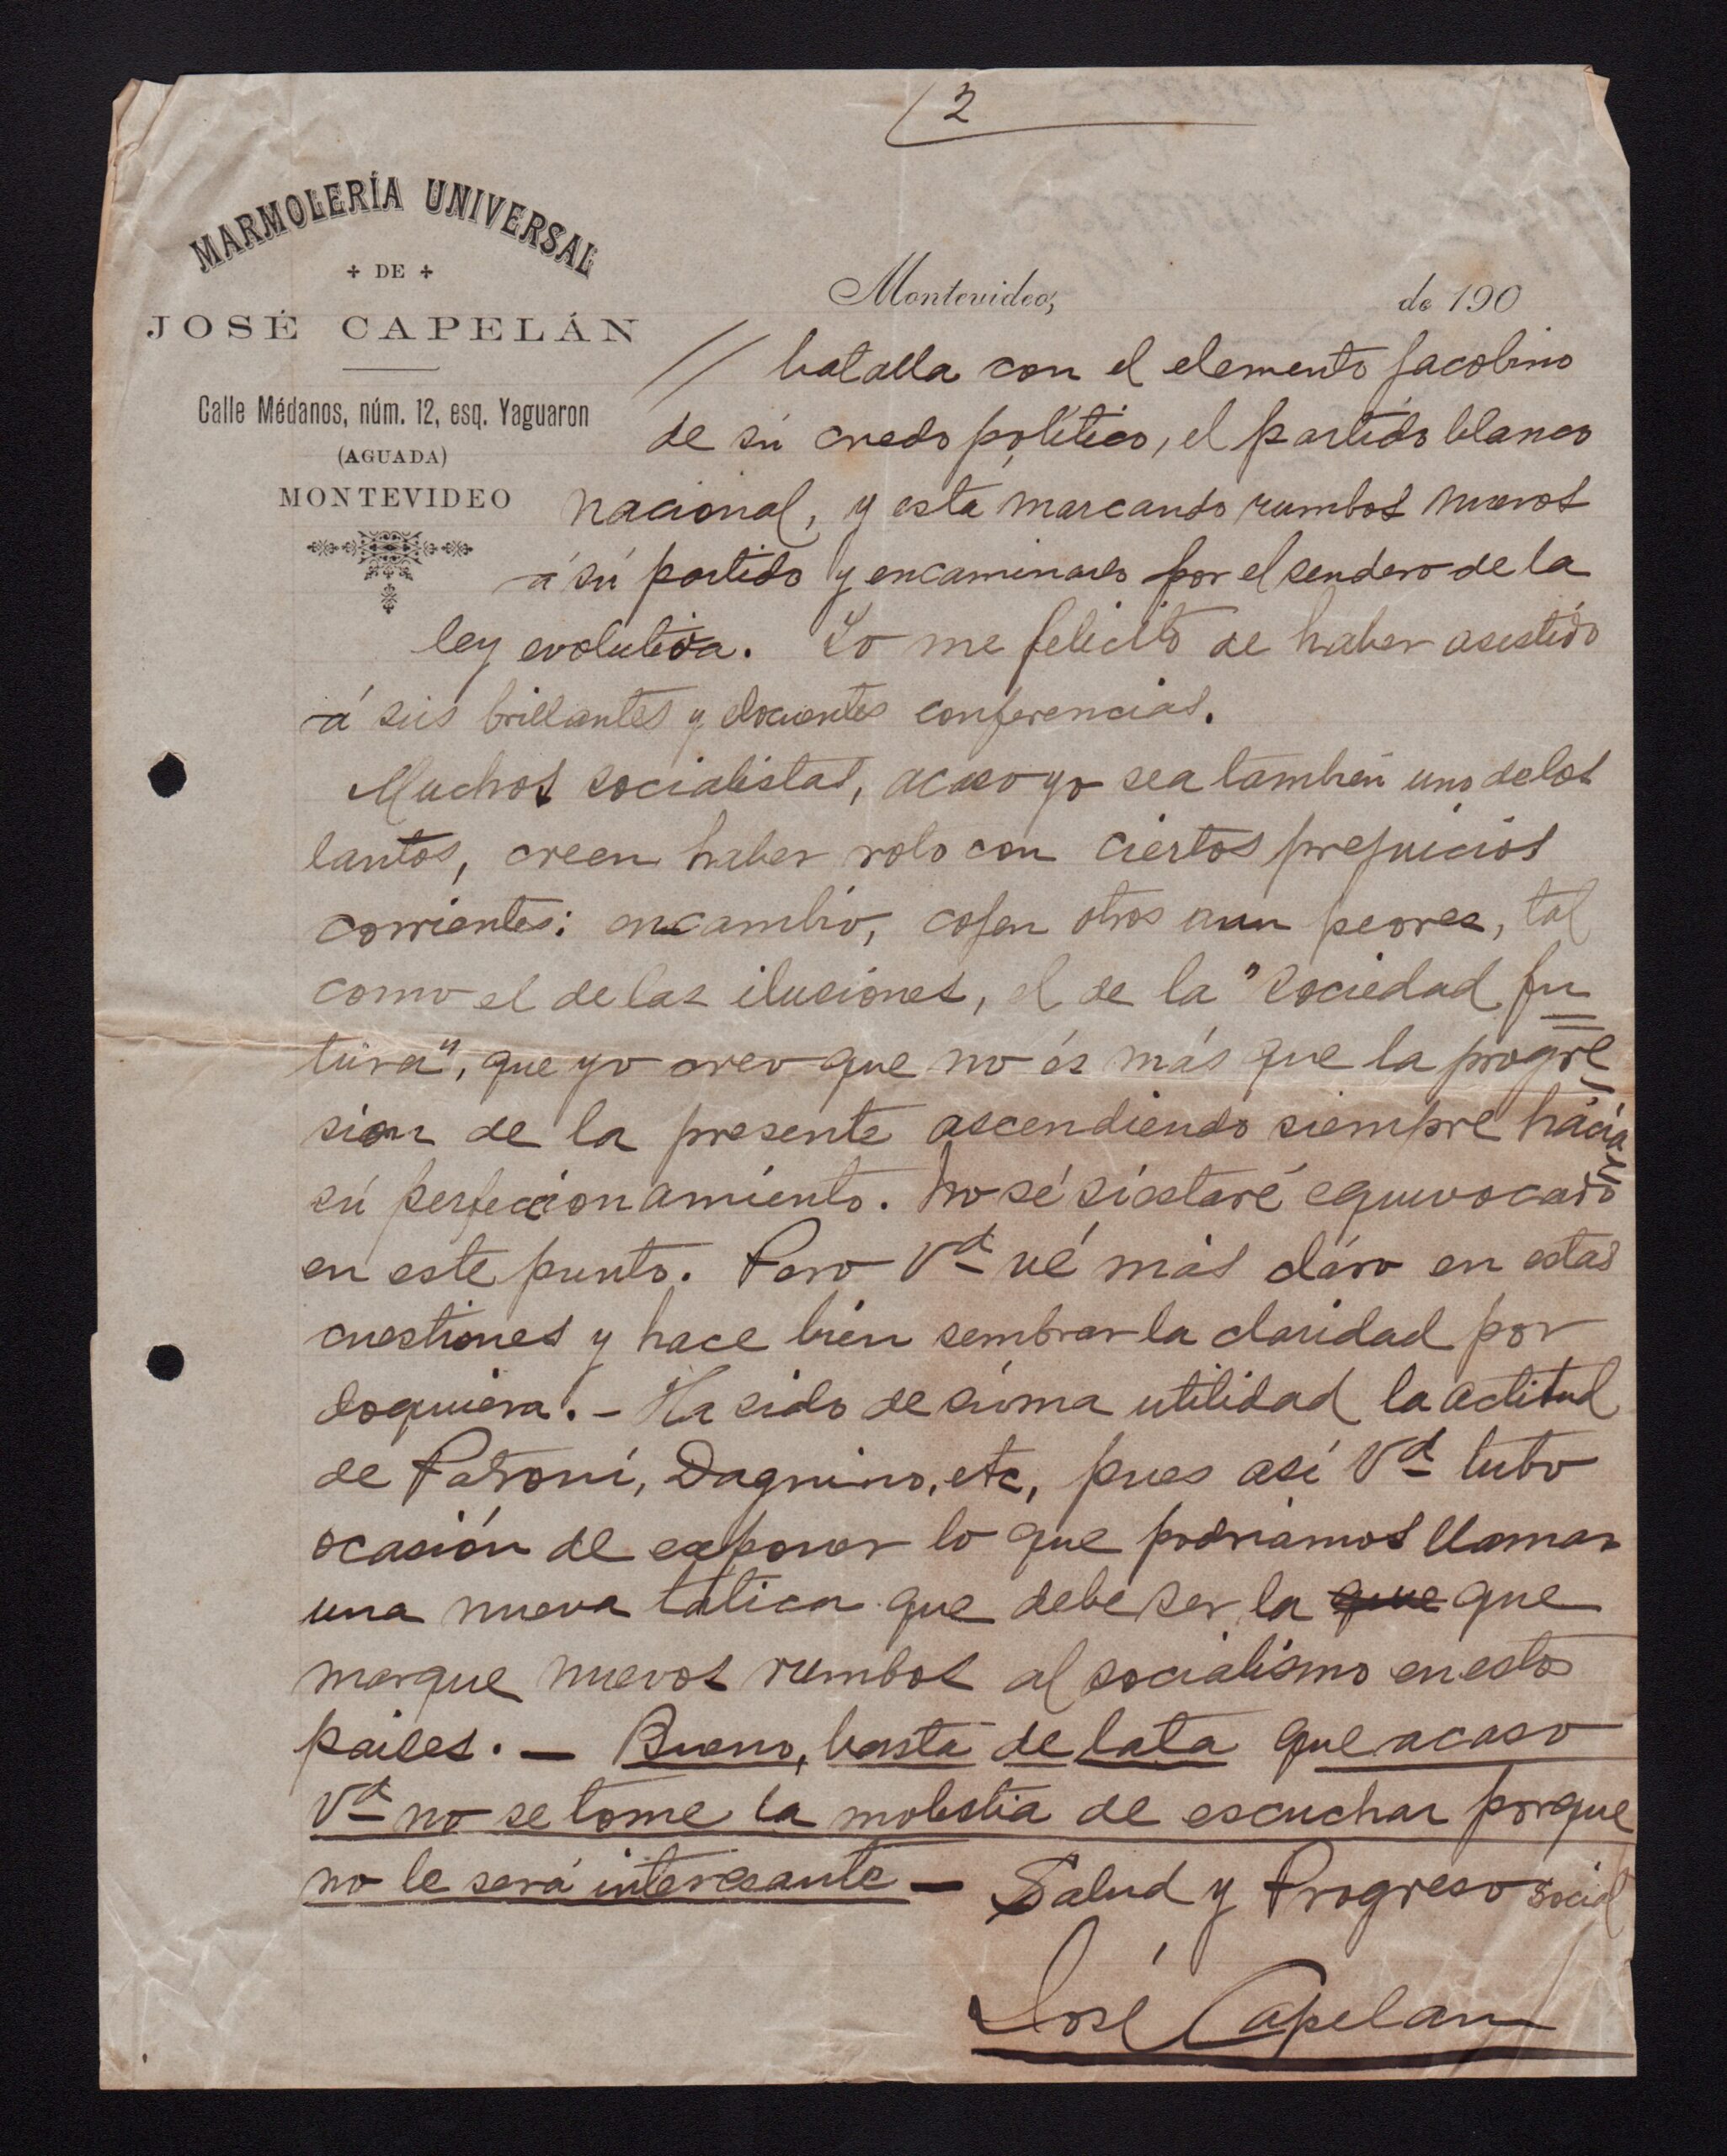 2
MARMOLERÍA UNIVERSAL
DE
JOSÉ CAPELÁN
Calle Médanos, núm. 12, esq. Yaguaron
(AGUADA)
MONTEVIDEO
Montevideo, de 190
// batalla con el elemento jacobino
de sú credo político, el partido blanco
nacional, y está marcando rumbos nuevos
á sú partido y encaminarlo por el sendero de la
ley evolutiva. Yo me felicito de haber asistido
á sus brillantes y elocuentes conferencias.
Muchos socialistas, acaso yo sea también uno de los
tantos, creen haber roto con ciertos prejuicios
corrientes: en cambio, cojen otros aun peores, tal
como el de las ilusiones, el de la "Sociedad fu
tura", que yo creo que no és más que la progre
sion de la presente ascendiendo siempre hácia
sú perfeccionamiento. No sé si estaré equivocado
en este punto. Pero Vd vé más cláro en estas
cuestiones y hace bien sembrar la claridad por
doquiera. - Ha sido de suma utilidad la actitud
de Patroni, Dagnino, etc, pues así Vd tubo
ocasión de exponer lo que podriamos llamar
una nueva tática que debe ser la que que
marque nuevos rumbos al socialismo en estos
paises. — Bueno, basta de lata que acaso
Vd no se tome la molestia de escuchar porque
no le será interesante — Salud y Progreso social
José Capelán